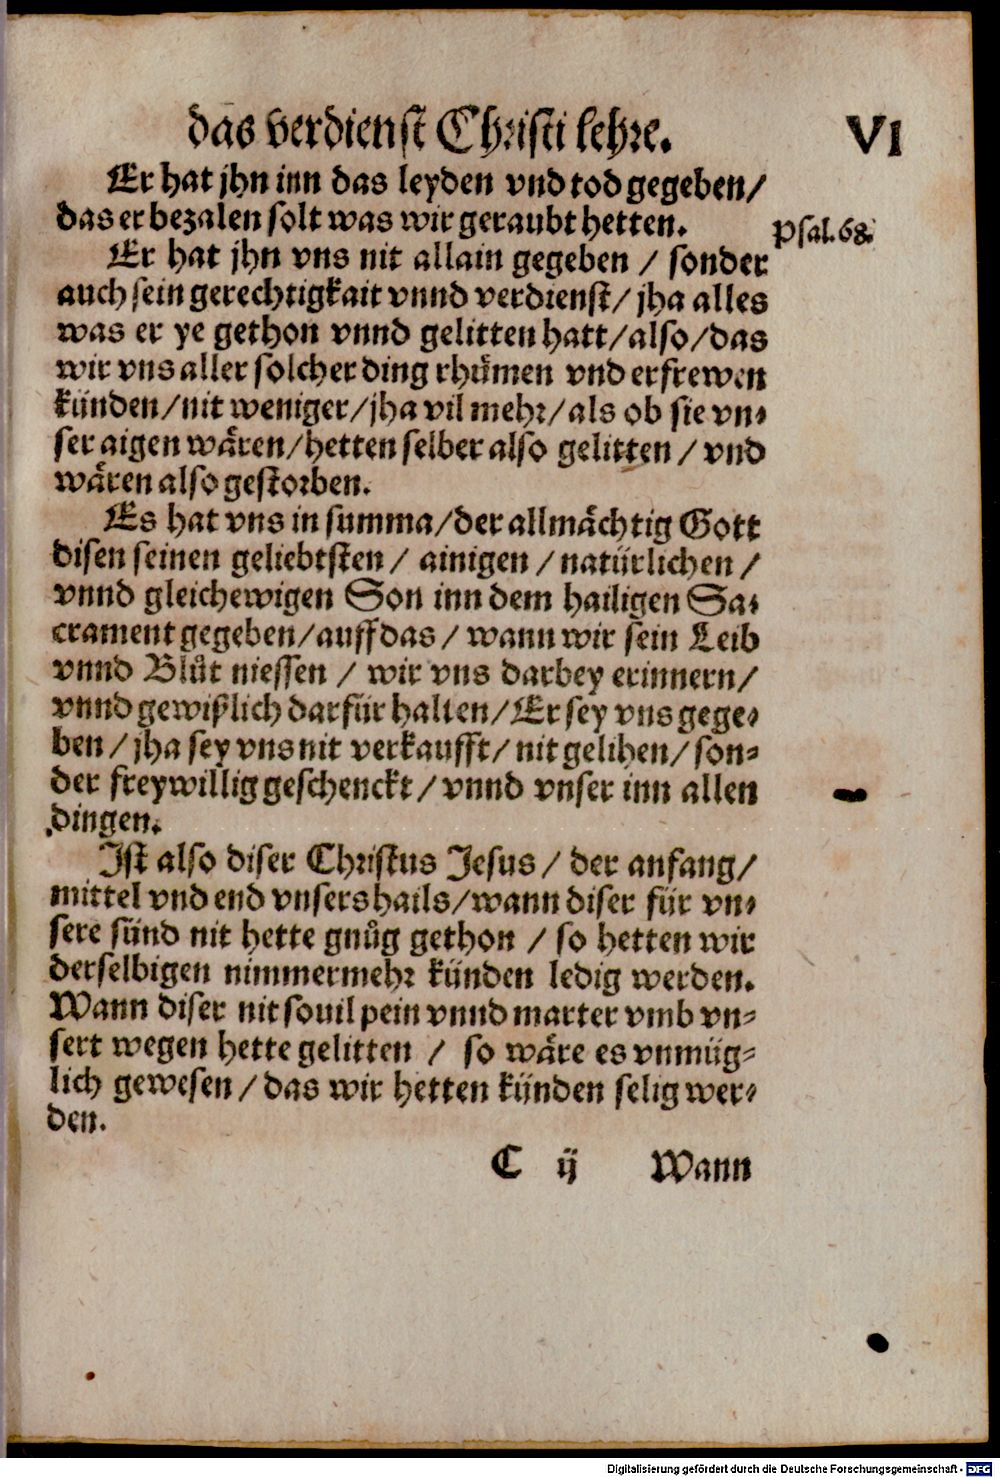 das verdienst Christi lehre. VI
Er hat jhn inn das leyden vnd tod gegeben/
das er bezalen solt was wir geraubt hetten.
Psal.68.
Er hat jhn vns nit allain gegeben / sonder
auch sein gerechtigkait vnnd verdienst/ jha alles
was er ye gethon vnnd gelitten hatt/also/das
wir vns aller solcher ding rhuͤmen vnd erfrewen
künden/nit weniger/jha vil mehr/als ob sie vn-
ser aigen waͤren/hetten selber also gelitten / vnd
waͤren also gestorben.
Es hat vns in summa/der allmaͤchtig Gott
disen seinen geliebtsten / ainigen / natürlichen /
vnnd gleichewigen Son inn dem hailigen Sa-
crament gegeben/auff das / wann wir sein Leib
vnnd Bluͦt niessen / wir vns darbey erinnern/
vnnd gewißlich darfür halten/Er sey vns gege-
ben / jha sey vns nit verkaufft/ nit gelihen/ son-
der freywillig geschenckt / vnnd vnser inn allen
dingen.
Ist also diser Christus Jesus / der anfang/
mittel vnd end vnsers hails/wann diser für vn-
sere sünd nit hette gnuͦg gethon / so hetten wir
derselbigen nimmermehr künden ledig werden.
Wann diser nit souil pein vnnd marter vmb vn-
sert wegen hette gelitten / so waͤre es vnmüg-
lich gewesen / das wir hetten künden selig wer-
den.
C ij Wann
Digitalisierung gefördert durch die Deutsche Forschungsgemeinschaft - DFG